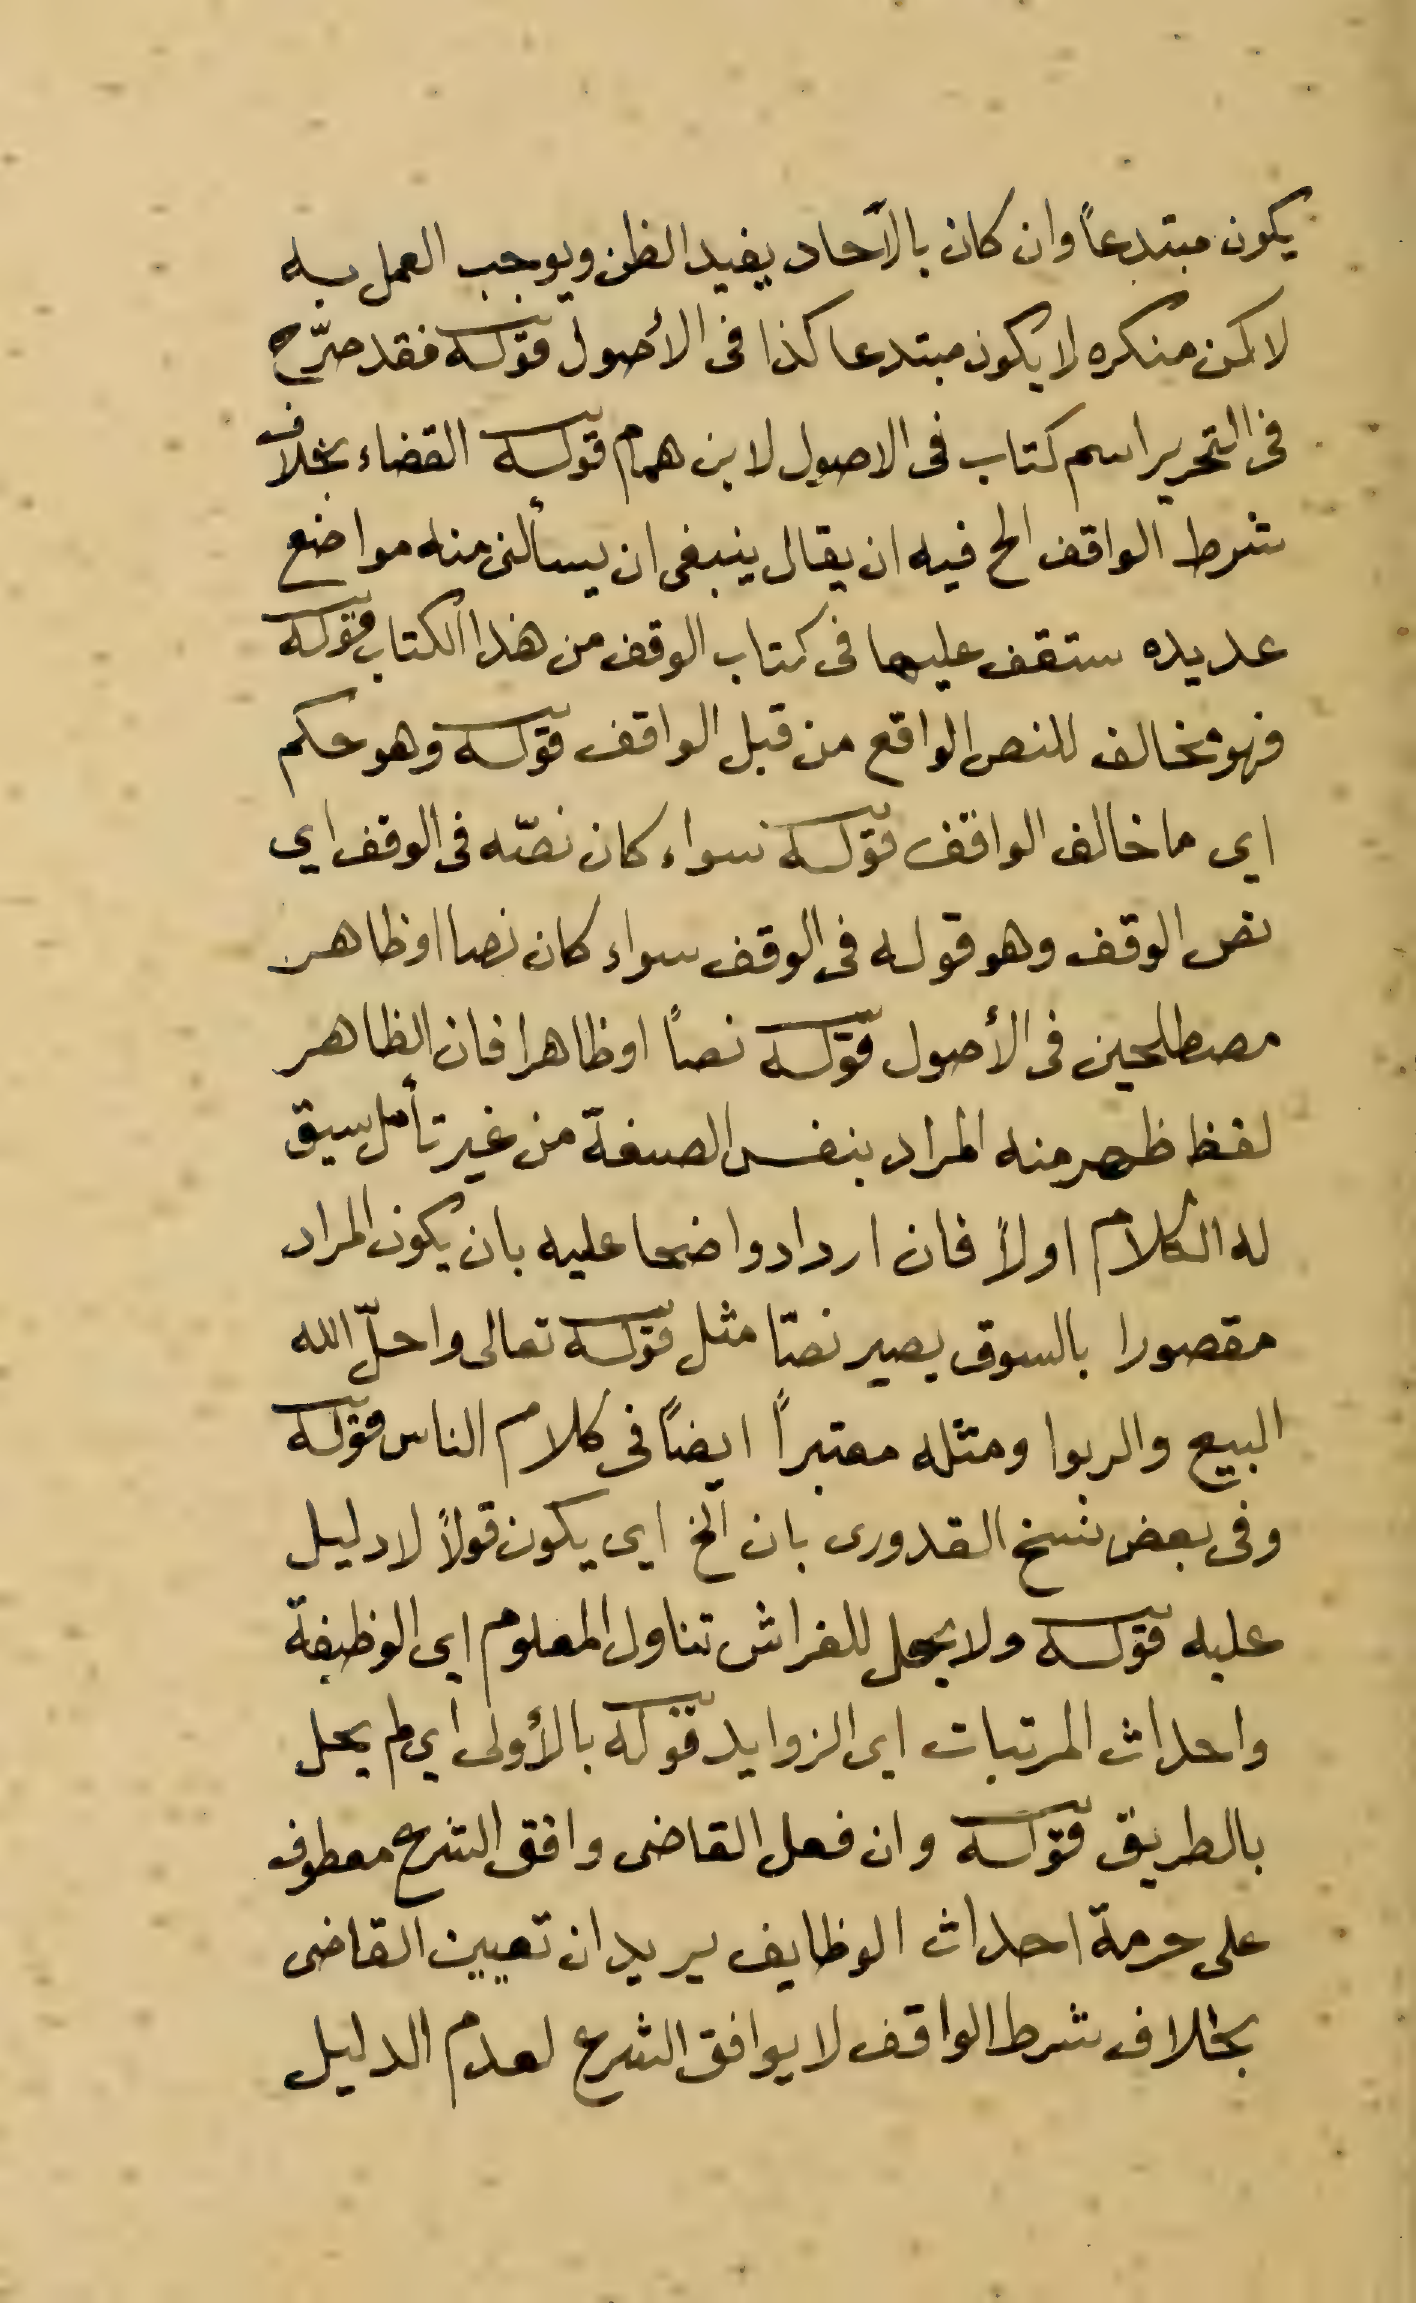 يكون مبتدعاً وان كان بالآحاد يفيد الظن ويوجب العمل به
لاكن منكره لا يكون مبتدعا كذا فى الأصول قوله فقد صرّح
فى التحرير اسم كتاب فى الاصول لابن همام قوله القضاء بخلاف
شرط الواقف الخ فيه ان يقال ينبغى ان منه مواضع
عديده ستقف عليها فى كتاب الوقف من هذا الكتاب قوله
فهو مخالف للنص الواقع من قبل الواقف قوله وهو حكم
اى ما خالف الواقف قوله سواء كان نصّه فى الوقف اى
نص الوقف وهو قوله فى الوقف سواء كان نصا او ظاهر
مصطلحين فى الأصول قوله نصاً او ظاهرا فان الظاهر
لفظ ظهر منه المراد بنفس الصيغة من غير تأمل سيق
له الكلام اولاً فان ارداد واضحا عليه بان يكون المراد
مقصورا بالسوق يصير نصّا مثل قوله تعالى واحلّ الله
البيع والربوا ومثله معتبراً ايضاً فى كلام الناس قوله
وفى بعض نسخ القدورى بان الخ اى يكون قولاً لا دليل
عليه قوله ولا يحل للفراش تناول المعلوم اى الوظيفة
واحداث المرتبات اى الزوايد قوله بالأولى اي لم يحل
بالطريق قوله وان فعل القاضى وافق الشرع معطوف
على حرمة احداث الوظايف يريد ان تعيين القاضى
بخلاف شرط الواقف لا يوافق الشرع لعدم الدليل